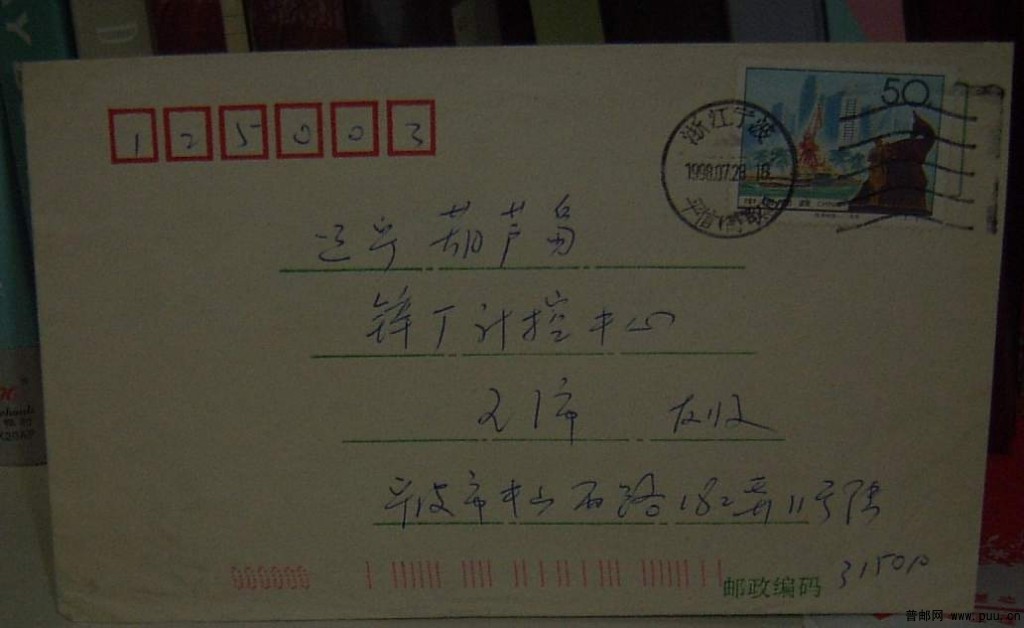 125003
50
浙江宁波
1998.07.28.18
辽宁 葫芦岛
锌厂计控中心
友收
宁波市中山西路182弄11号陈
000000
邮政编码 315010
普邮网 www.puu.cn